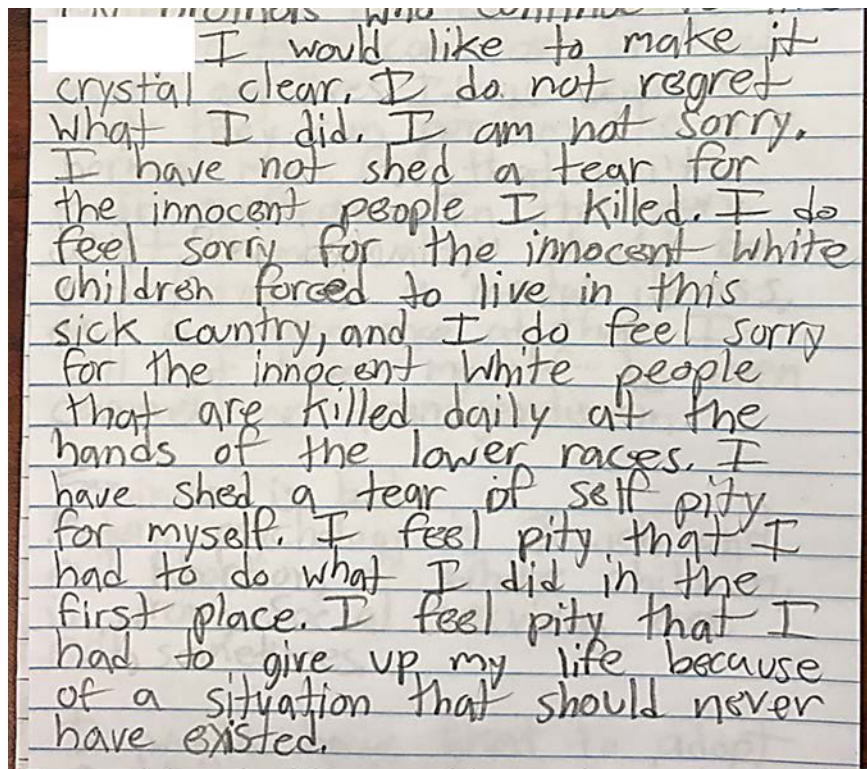 I would like to make it
crystal clear. I do not regret
what I did. I am not sorry.
I have not shed a tear for
the innocent people I killed. I do
feel sorry for the innocent white
children forced to live in this
sick country, and I do feel sorry
for the innocent white people
that are killed daily at the
hands of the lower races. I
have shed a tear of self pity
for myself. I feel pity that I
had to do what I did in the
first place. I feel pity that I
had to give up my life because
of a situation that should never
have existed.